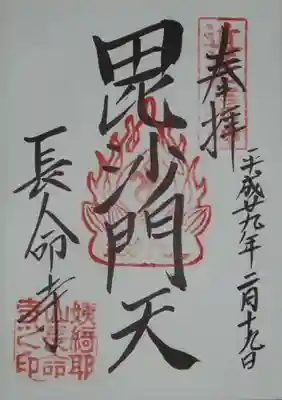 奉拝
平成廿九年二月十九日
毘沙門天
長命寺
姨綺耶山長命寺之印